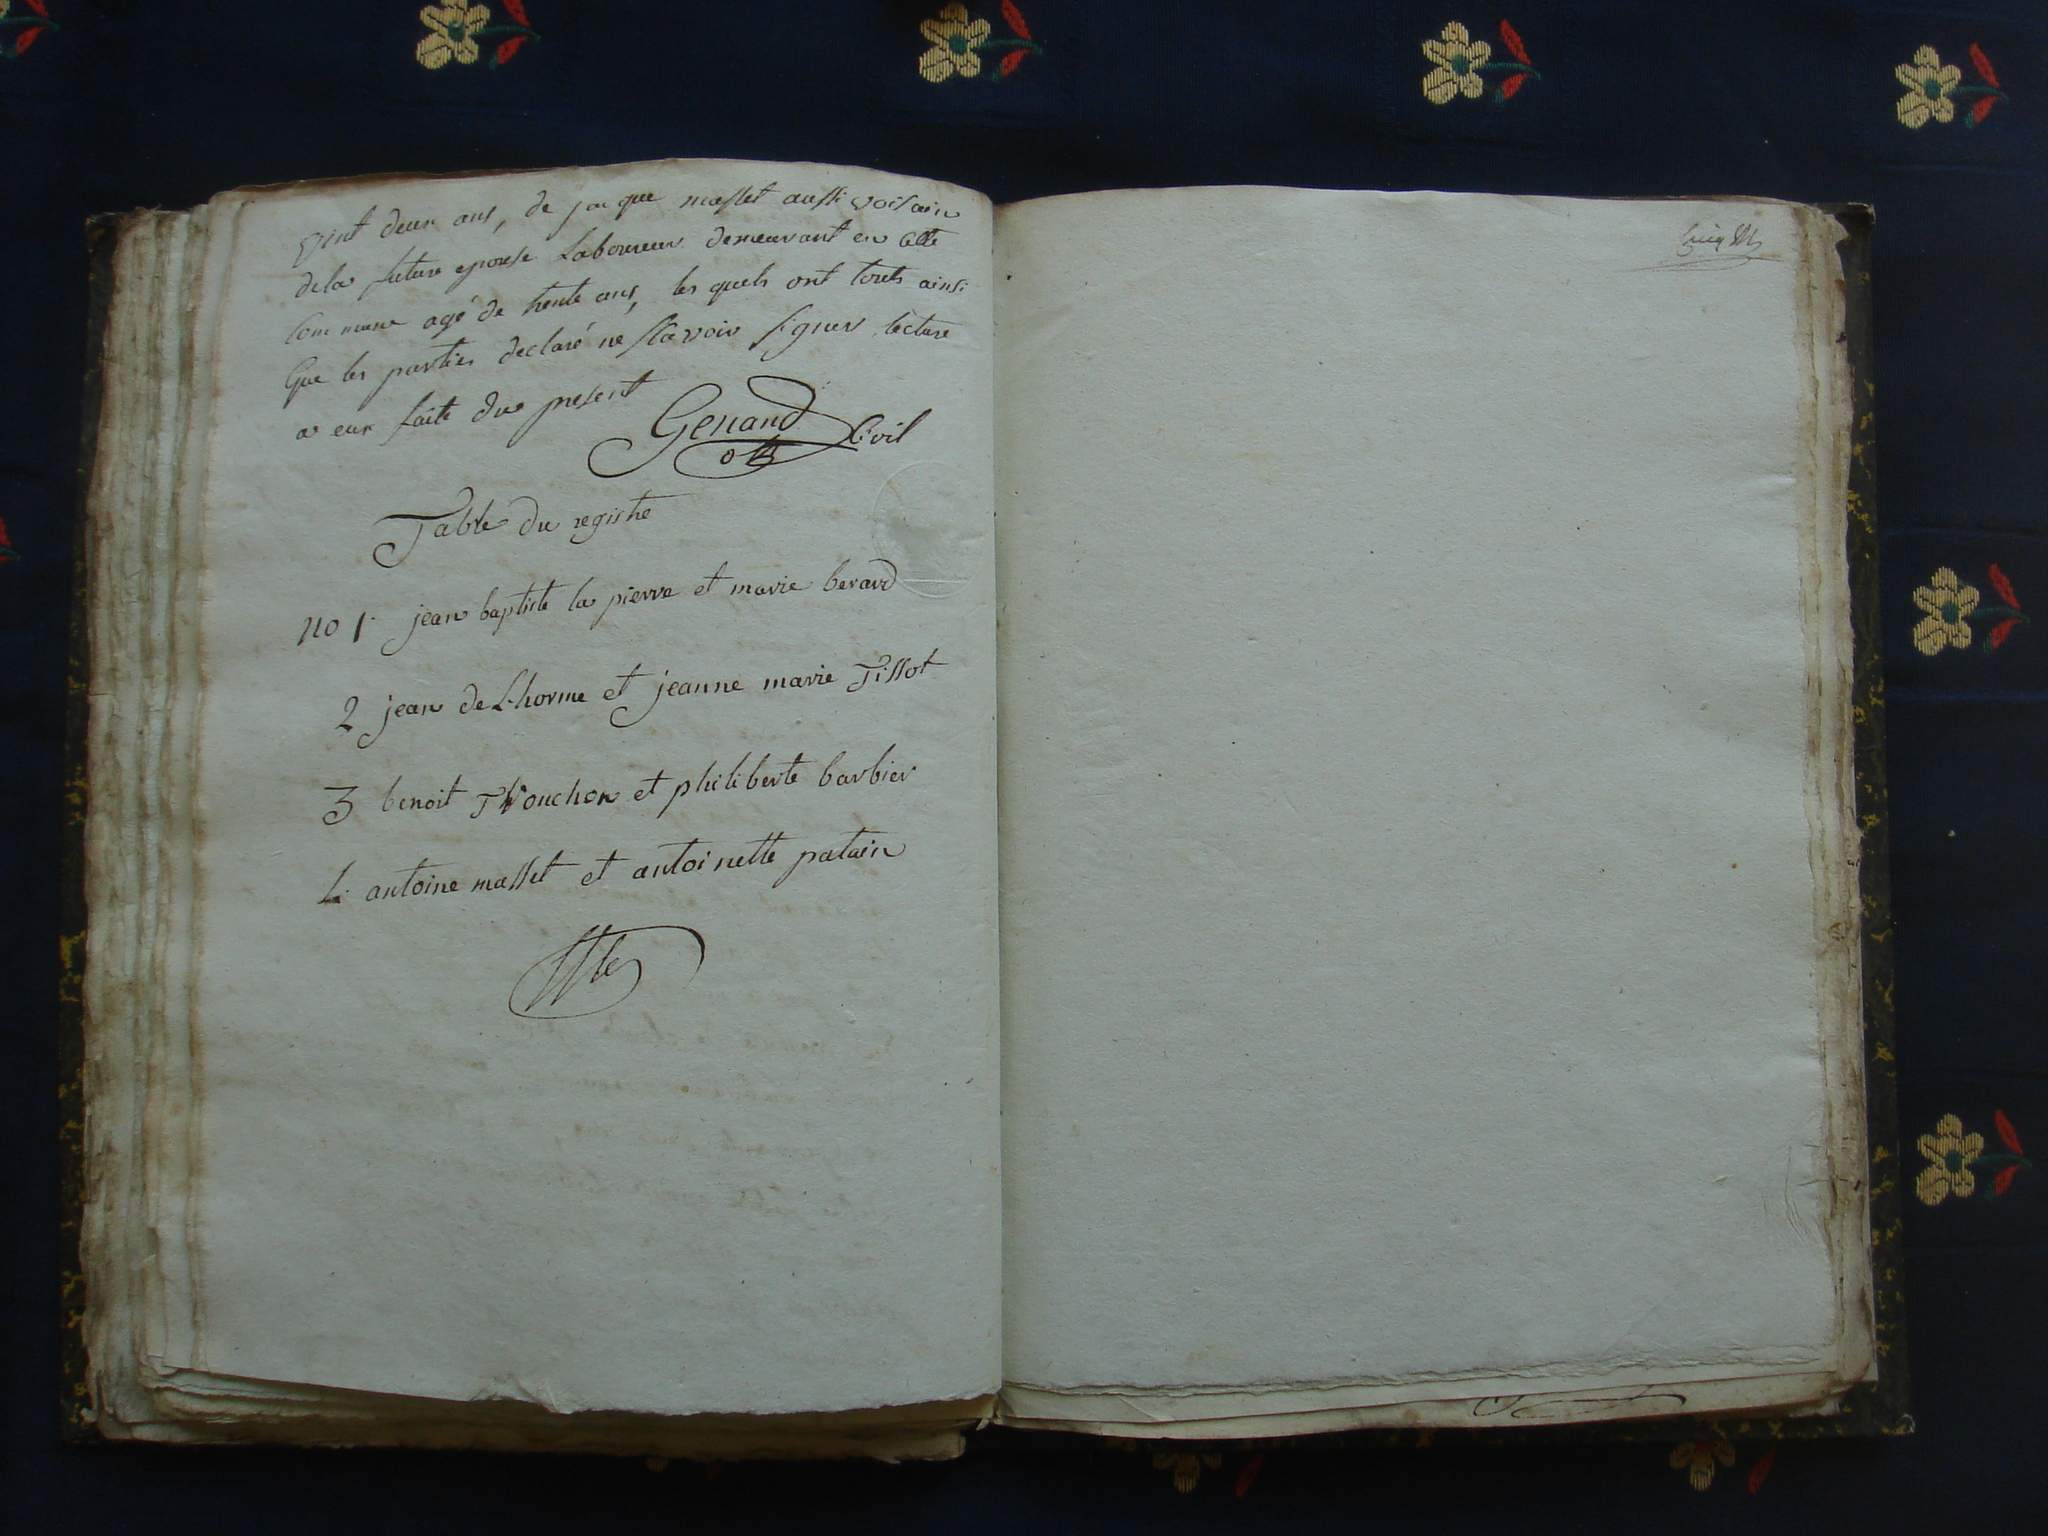 vint deux ans, de jacque masset aussi voisain
dela future epouse Laboureur demeurant en cette
Commune agé de trente ans, les quels ont touts ainsi
Que les parties declaré ne sçavoir signer lecture
a eux faite du present
Genand Civil
Table du registre
no 1. jean baptiste la pierre et marie berard
2 jean de Lhorme et jeanne marie Tissot
3 benoit Trouchon et philiberte barbier
4. antoine masset et antoinette patain